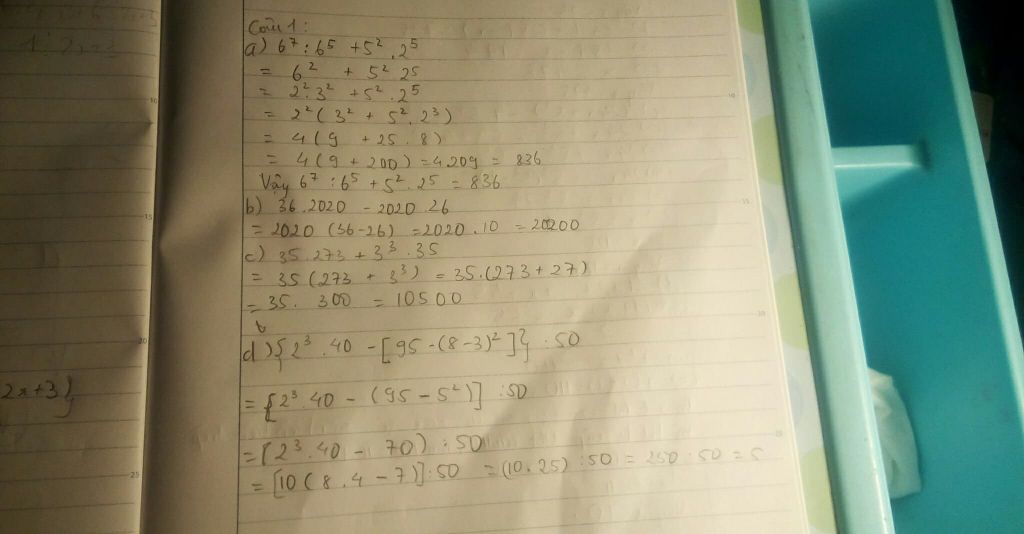 2x+3}
Câu 1:
a) 6⁷ : 6⁵ + 5² . 2⁵
= 6² + 5² 2⁵
= 2² 3² + 5² . 2⁵
= 2² ( 3² + 5² . 2³ )
= 4 ( 9 + 25 . 8 )
= 4 ( 9 + 200 ) = 4.209 = 836
Vậy 6⁷ : 6⁵ + 5² . 2⁵ = 836
b) 36.2020 - 2020 .26
= 2020 (36-26) = 2020 . 10 = 20200
c) 35.273 + 3³ .35
= 35 (273 + 3³) = 35.(273 + 27)
= 35. 300 = 10500
d) {2³ .40 - [95 - (8-3)²]} : 50
= {2³ .40 - (95 - 5²)] : 50
= [2³ .40 - 70) : 50
= [10 ( 8 . 4 - 7)] : 50 = (10.25) : 50 = 250 : 50 = 5